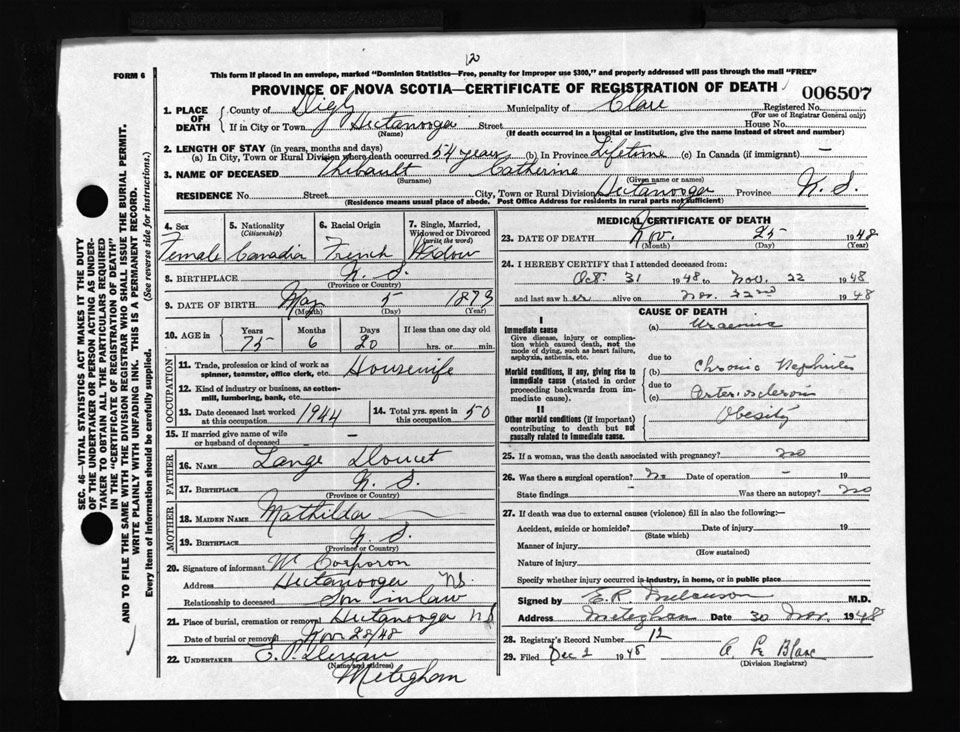 12
FORM 6
This form if placed in an envelope, marked "Dominion Statistics—Free, penalty for improper use $300," and properly addressed will pass through the mail "FREE"
PROVINCE OF NOVA SCOTIA—CERTIFICATE OF REGISTRATION OF DEATH
006507
1. PLACE OF DEATH { County of Digby Municipality of Clare Registered No.
(For use of Registrar General only)
If in City or Town Hectanooga Street House No.
(Name) (If death occurred in a hospital or institution, give the name instead of street and number)
2. LENGTH OF STAY (in years, months and days)
(a) In City, Town or Rural Division where death occurred 54 years (b) In Province Lifetime (c) In Canada (if immigrant) —
3. NAME OF DECEASED Thibault Catherine
(Surname) (Given name or names)
RESIDENCE No. Street City, Town or Rural Division Hectanooga Province N. S.
(Residence means usual place of abode. Post Office Address for residents in rural parts not sufficient)
4. Sex Female
5. Nationality (Citizenship) Canadia
6. Racial Origin French
7. Single, Married, Widowed or Divorced (write the word) Widow
8. BIRTHPLACE N. S.
(Province or Country)
9. DATE OF BIRTH May 5 1873
(Month) (Day) (Year)
10. AGE in Years Months Days If less than one day old
75 6 20 hrs. or min.
OCCUPATION
11. Trade, profession or kind of work as spinner, teamster, office clerk, etc. Housewife
12. Kind of industry or business, as cotton-mill, lumbering, bank, etc.
13. Date deceased last worked at this occupation 1944
14. Total yrs. spent in this occupation 50
15. If married give name of wife or husband of deceased —
FATHER
16. NAME Lange Doucet
17. BIRTHPLACE N. S.
(Province or Country)
MOTHER
18. MAIDEN NAME Mathilda —
19. BIRTHPLACE N. S.
(Province or Country)
20. Signature of informant W Corporon
Address Hectanooga N.S.
Relationship to deceased Son in law
21. Place of burial, cremation or removal Hectanooga N.S.
Date of burial or removal Nov 28/48
22. UNDERTAKER
(Name and address)
Meteghan
MEDICAL CERTIFICATE OF DEATH
23. DATE OF DEATH Nov. 25 1948
(Day) (Year)
24. I HEREBY CERTIFY that I attended deceased from:
Oct. 31 1948 to Nov. 22 1948
and last saw her alive on Nov. 22nd 1948
CAUSE OF DEATH
I
Immediate cause
Give disease, injury or complication which caused death, not the mode of dying, such as heart failure, asphyxia, asthenia, etc.
(a) Uraemia
due to
Morbid conditions, if any, giving rise to immediate cause (stated in order proceeding backwards from immediate cause).
(b) Chronic Nephritis
due to
(c) Arteriosclerosis
II
Other morbid conditions (if important) contributing to death but not causally related to immediate cause.
Obesity
25. If a woman, was the death associated with pregnancy? no
26. Was there a surgical operation? No Date of operation — 19
State findings — Was there an autopsy? No
27. If death was due to external causes (violence) fill in also the following:—
Accident, suicide or homicide? Date of injury 19
(State which)
Manner of injury
(How sustained)
Nature of injury
Specify whether injury occurred in industry, in home, or in public place
Signed by E. R. Melanson M.D.
Address Meteghan Date 30 Nov. 1948
28. Registrar's Record Number 12
29. Filed Dec 2 1948 A Le Blanc
(Division Registrar)
SEC. 46—VITAL STATISTICS ACT MAKES IT THE DUTY
OF THE UNDERTAKER OR PERSON ACTING AS UNDER-
TAKER TO OBTAIN ALL THE PARTICULARS REQUIRED
IN THE "CERTIFICATE OF REGISTRATION OF DEATH"
AND TO FILE THE SAME WITH THE DIVISION REGISTRAR WHO SHALL ISSUE THE BURIAL PERMIT.
WRITE PLAINLY WITH UNFADING INK. THIS IS A PERMANENT RECORD.
Every item of information should be carefully supplied. (See reverse side for instructions.)